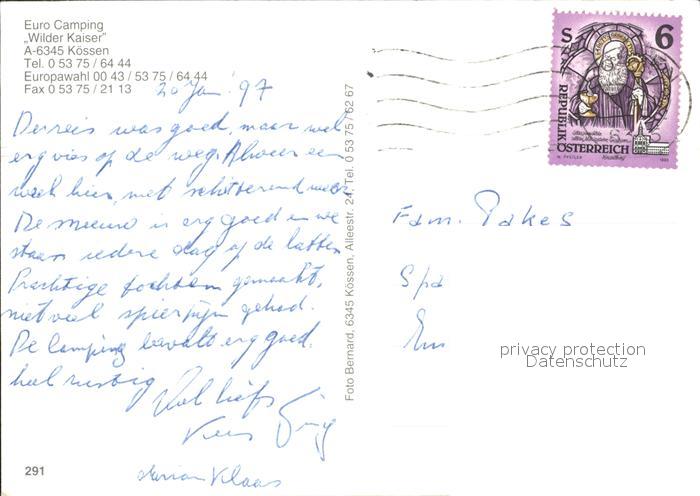 Euro Camping
„Wilder Kaiser"
A-6345 Kössen
Tel. 0 53 75 / 64 44
Europawahl 00 43 / 53 75 / 64 44
Fax 0 53 75 / 21 13
20 Jan '97
De reis was goed, maar wel
erg vies op de weg. Alweer een
week hier, met schitterend weer
De sneeuw is erg goed en we
staan iedere dag op de latten
Prachtige tochten gemaakt,
niet veel spierpijn gehad.
De Camping bevalt erg goed.
heel rustig
Veel liefs
Marian Klaas
291
Foto Bernard, 6345 Kössen, Alleestr. 24, Tel. 0 53 75 / 62 67
S 6
REPUBLIK
ÖSTERREICH
Fam. Pakes
Spa
privacy protection
Datenschutz